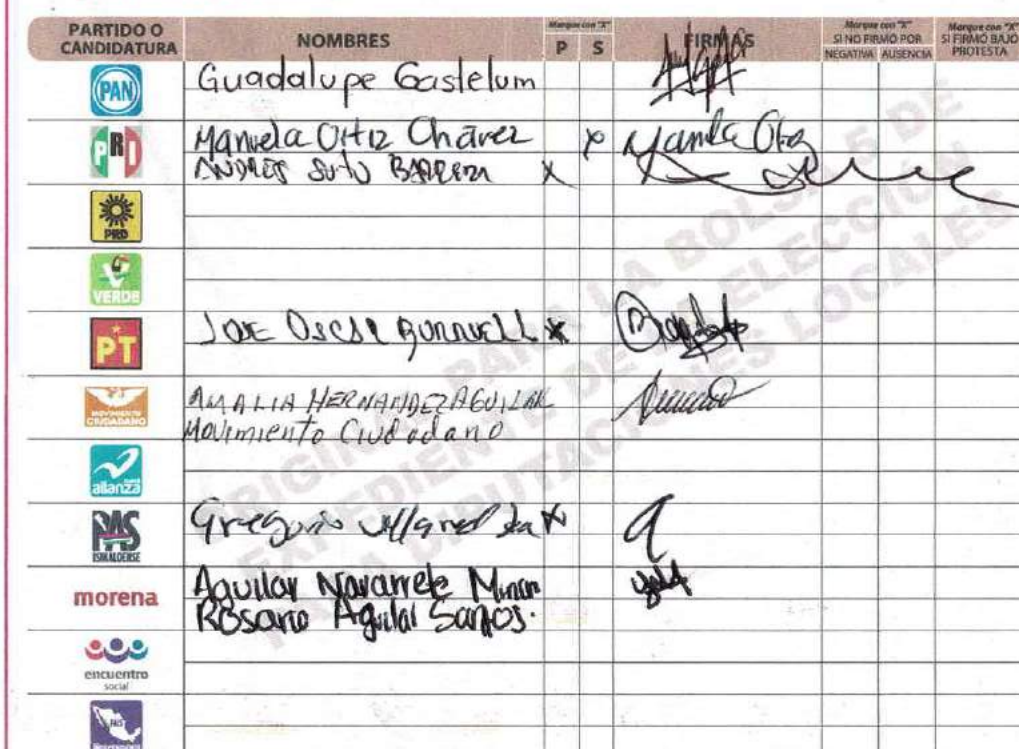 PARTIDO O CANDIDATURA NOMBRES Marque con "X" P S FIRMAS Marque con "X" SI NO FIRMÓ POR NEGATIVA AUSENCIA Marque con "X" SI FIRMÓ BAJO PROTESTA
PAN Guadalupe Gastelum
PRD Manuela Ortiz Chávez x Manuela Ortiz
ANDRES SOTO BARRERA x
PRD
VERDE
PT JOSE OSCAR x
MOVIMIENTO CIUDADANO AMALIA HERNANDEZ AGUILAR
Movimiento Ciudadano
alianza
PAS SINALOENSE Gregorio x
morena Aguilar Navarrete
Rosario Aguilar Santos.
encuentro social
PAIS
ORIGINAL PARA LA BOLSA 5 DE
EXPEDIENTE DE LA ELECCIÓN
PARA DIPUTACIONES LOCALES